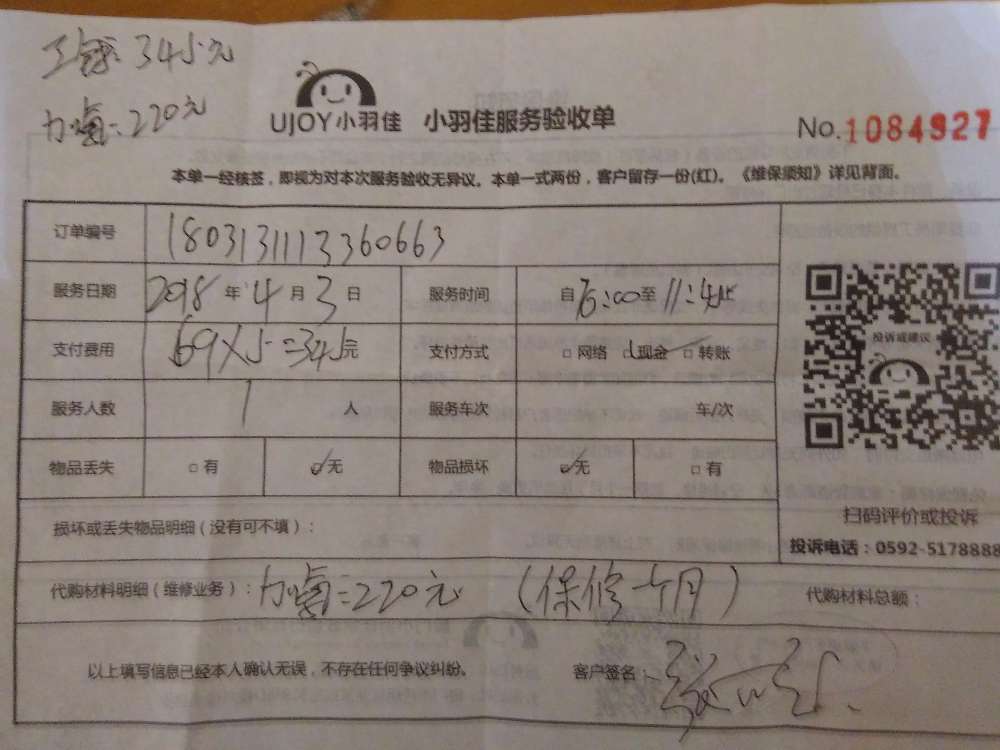 345元
220元
UJOY小羽佳 小羽佳服务验收单
No.1084927
本单一经核签，即视为对本次服务验收无异议。本单一式两份，客户留存一份(红)。《维保须知》详见背面。
订单编号 1803131113360663
服务日期 2018 年 4 月 3 日 服务时间 自 至 11:45
支付费用 69×5=345元 支付方式 □网络 □现金 □转账
服务人数 1 人 服务车次 车/次
物品丢失 □有 ☑无 物品损坏 ☑无 □有
投诉或建议
扫码评价或投诉
投诉电话：0592-5178888
损坏或丢失物品明细（没有可不填）：
代购材料明细（维修业务）： 220元 （保修一个月） 代购材料总额：
以上填写信息已经本人确认无误，不存在任何争议纠纷。 客户签名：